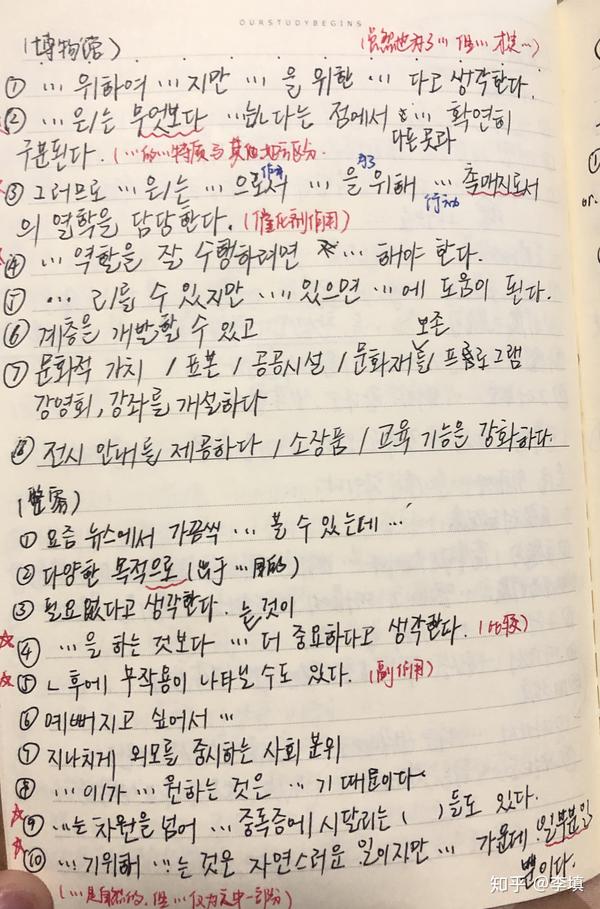 OURSTUDYBEGINS
(博物馆) (虽然也为了… 但… 才是…)
① … 위하여 … 지만 … 을 위한 … 다고 생각한다.
② … 은/는 무엇보다 … ㅂ니다는 점에서 … 확연히
다른 곳과
구분된다. (…的…特质与其他地方区分.
③ 그러므로 … 은/는 … 으로서 … 을 위해 … 촉매지도서
作用 为了 行动
의 열학을 담당한다. (催化剂作用)
④ … 역할을 잘 수행하려면 … 해야 한다.
⑤ … ㄹ 수 있지만 … 있으면 … 에 도움이 된다.
⑥ 계층을 개발할 수 있고
보존
⑦ 문화적 가치 / 표본 / 공공시설 / 문화재를 프로그램
강영회, 강좌를 개설하다
⑧ 전시 안내를 제공하다 / 소장품 / 교육 기능을 강화하다.
(整容)
① 요즘 뉴스에서 가끔씩 … 볼 수 있는데 …
② 다양한 목적으로 (出于…目的)
③ 필요없다고 생각한다. 는 것이
④ … 을 하는 것보다 … 더 중요하다고 생각한다. (比较)
⑤ ㄴ 후에 부작용이 나타날 수도 있다. (副作用)
⑥ 예뻐지고 싶어서 …
⑦ 지나치게 외모를 중시하는 사회 분위
⑧ … 이/가 … 원하는 것은 … 기 때문이다.
⑨ … 는 차원을 넘어 … 중독증에 시달리는 ( )들도 있다.
⑩ … 기위해 … 는 것은 자연스러운 일이지만 … 가운데 일부분일
뿐이다.
(… 是自然的, 但… 仅为其中一部分)
知乎 @李填